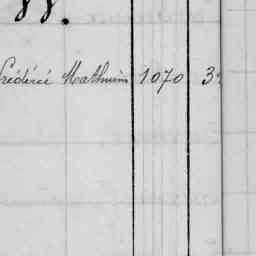 88.
Frédéric Mathurin 1070 3